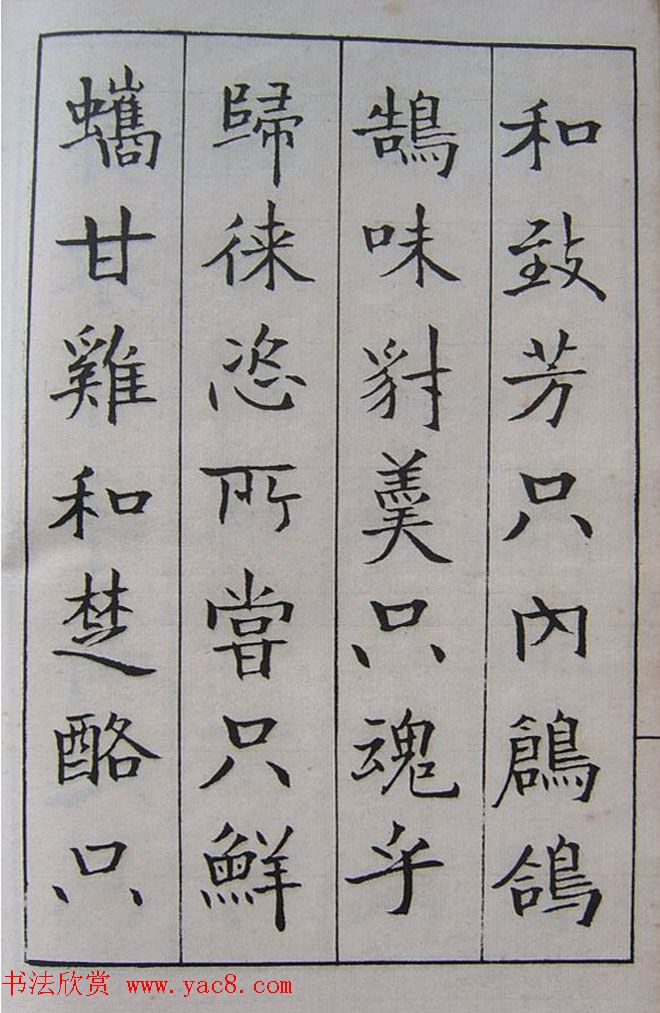 和致芳只內鶬鴿
鵠味豺羹只魂乎
歸徕恣所嘗只鮮
蠵甘雞和楚酪只
书法欣赏 www.yac8.com